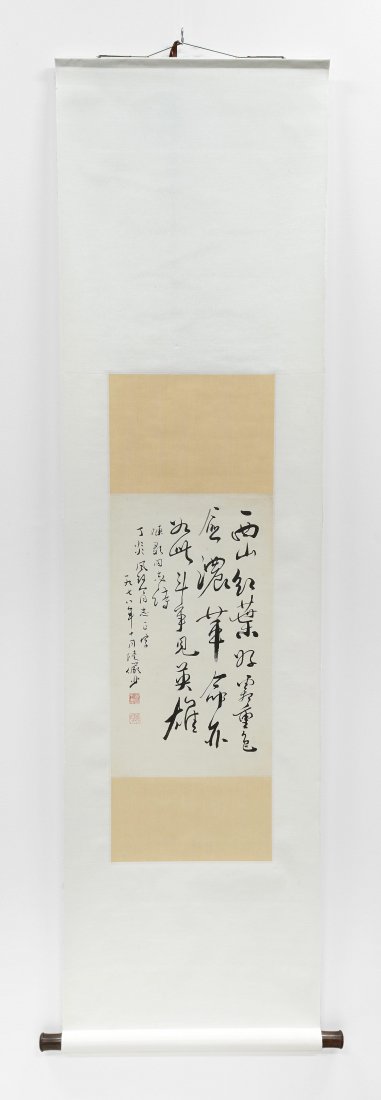 西山红葉好霜重色
愈濃革命亦
如此斗争见英雄
陈毅同志诗
丁 同志正字
一九七八年十月陸儼少